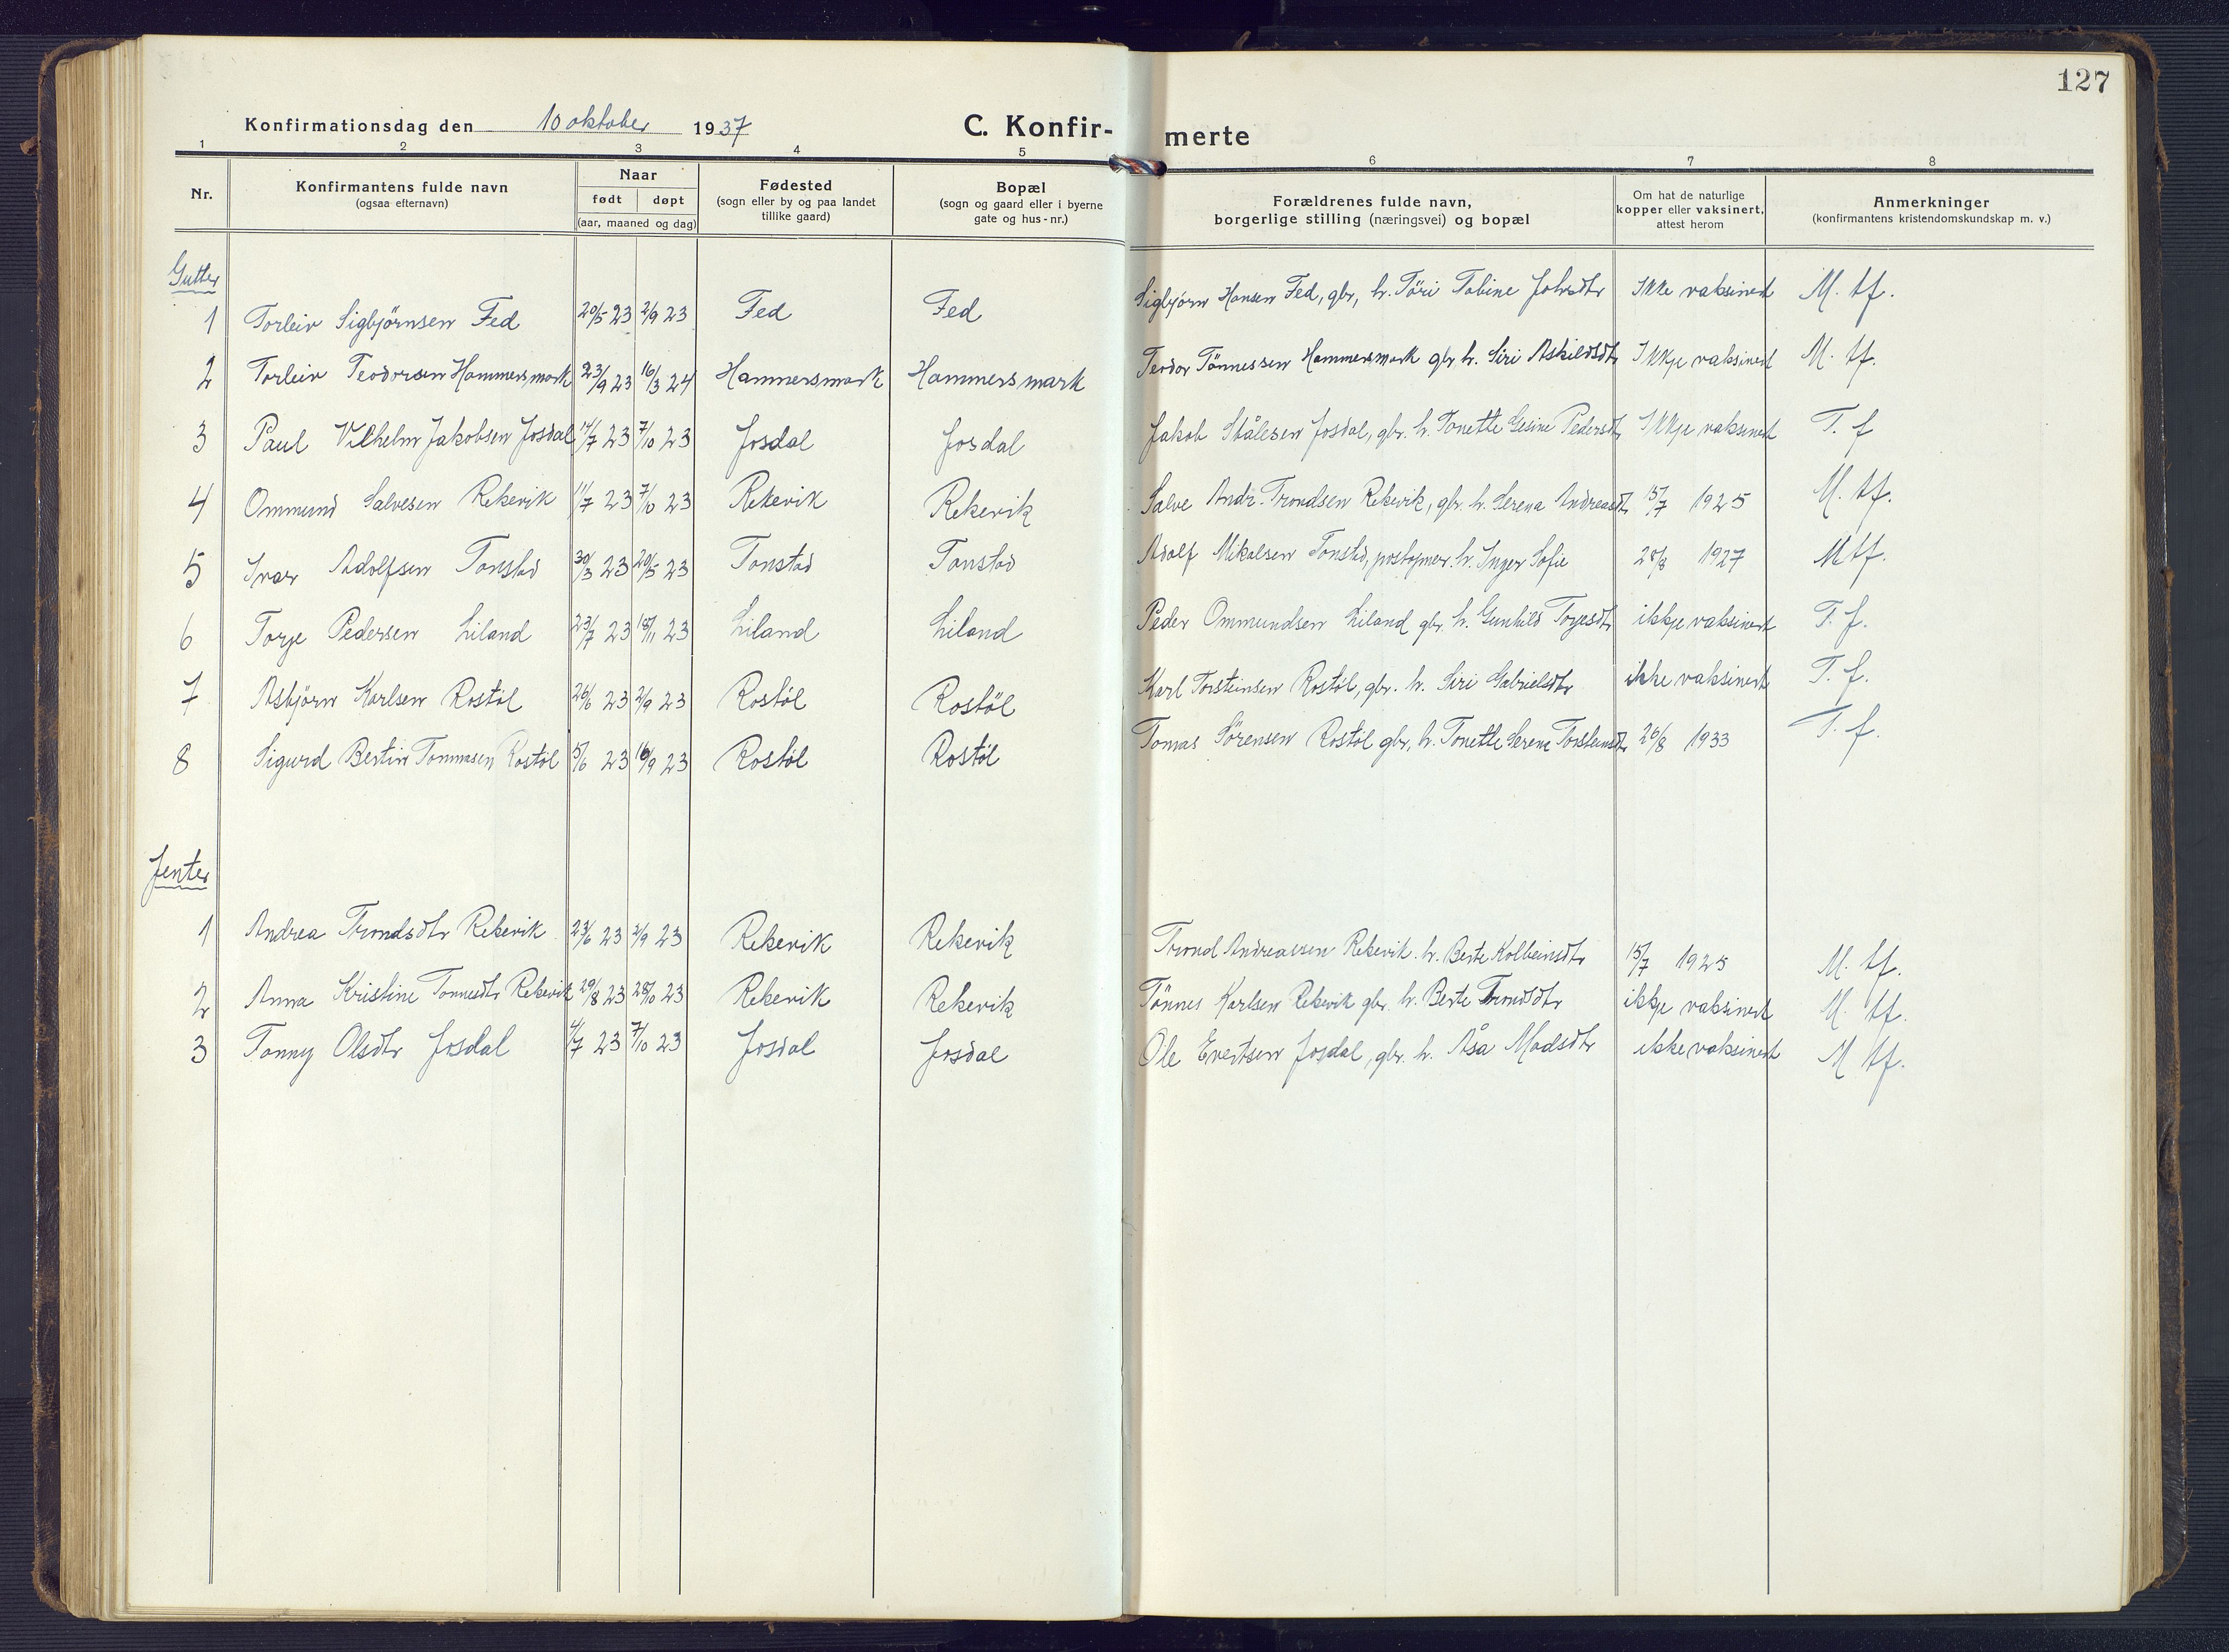 127
Konfirmationsdag den 10 oktober 1937 C. Konfir- merte
1 2 3 4 5 6 7 8
Nr. Konfirmantens fulde navn (ogsaa efternavn) Naar født døpt (aar, maaned og dag) Fødested (sogn eller by og paa landet tillike gaard) Bopæl (sogn og gaard eller i byerne gate og hus-nr.) Forældrenes fulde navn, borgerlige stilling (næringsvei) og bopæl Om hat de naturlige kopper eller vaksinert, attest herom Anmerkninger (konfirmantens kristendomskundskap m. v.)
Gutter
1 Torleiv Sigbjørnsen Fed 20/5 23 2/9 23 Fed Fed Sigbjørn Hansen Fed, gbr, h. Töri Tobine Johrsdtr Ikke vaksinert M. tf.
2 Torleiv Teodorsen Hammersmark 23/9 23 16/3 24 Hammersmark Hammersmark Teodor Tönnessen Hammersmark gbr h. Siri Askildsdtr Ikkje vaksinert M. tf.
3 Paul Vilhelm Jakobsen Josdal 14/7 23 7/10 23 Josdal Josdal Jakob Ståleson Josdal, gbr. h. Tonette Gesine Pedersdtr Ikkje vaksinert T. f
4 Ommund Salvesen Rekevik 11/7 23 7/10 23 Rekevik Rekevik Salve Andr. Trondsen Rekevik, gbr. h. Serena Andreasdt 15/7 1925 M. tf.
5 Ivar Adolfsen Tonstad 30/3 23 20/5 23 Tonstad Tonstad Adolf Mikalsen Tonstad, postopner. h. Inger Sofie 28/8 1927 M tf.
6 Torje Pedersen Liland 23/7 23 18/11 23 Liland Liland Peder Ommundsen Liland gbr. h. Gunhild Torjesdtr ikkje vaksinert T. f.
7 Asbjörn Karlsen Rostøl 26/6 23 2/9 23 Rostøl Rostøl Karl Torsteinsen Rostøl, gbr. h. Siri Gabrielsdtr ikke vaksinert T. f.
8 Sigurd Bertin Tommasen Rostøl 5/6 23 16/9 23 Rostøl Rostøl Tomas Sörensen Rostøl gbr, h. Tonette Serene Torsteinsdtr 26/8 1933 T. f.
Jenter
1 Andrea Trondsdtr Rekevik 23/6 23 2/9 23 Rekevik Rekevik Trond Andreassen Rekevik. h. Berte Kolbeinsdtr 15/7 1925 M. tf.
2 Anna Kristine Tonnesdtr Rekevik 29/8 23 28/10 23 Rekevik Rekevik Tönnes Karlsen Rekevik gbr. h. Berte Trondsdtr ikkje vaksinert M. tf.
3 Tonny Olsdtr Josdal 4/7 23 7/10 23 Josdal Josdal Ole Evertsen Josdal, gbr. h. Åsa Madsdtr ikke vaksinert M tf.